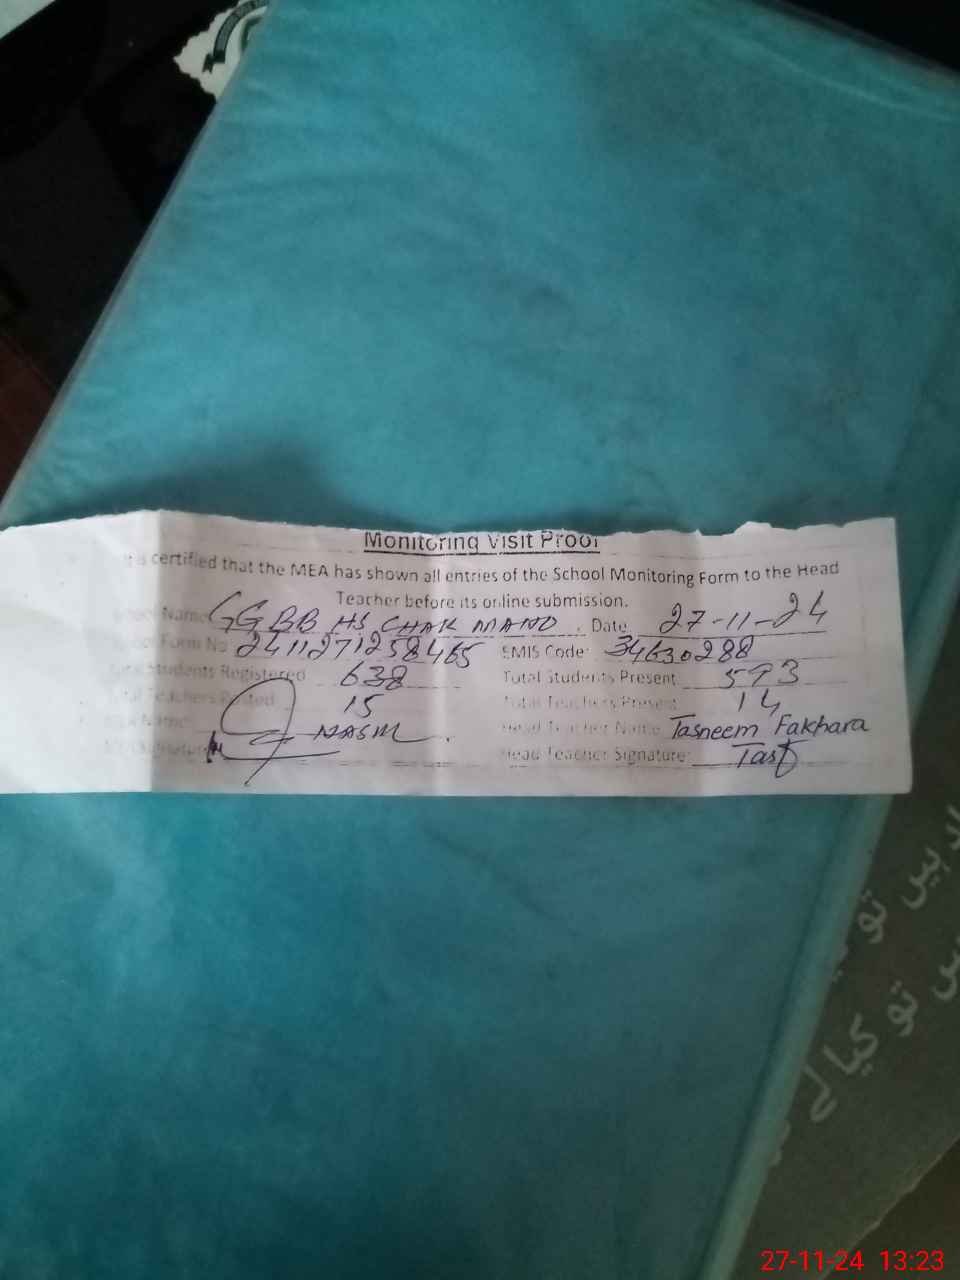 Monitoring Visit Proof
It is certified that the MEA has shown all entries of the School Monitoring Form to the Head
Teacher before its online submission.
School Name GGBB HS CHAK MAND. Date 27-11-24
School Form No 2411271258465 EMIS Code: 34630288
Total Students Registered 638 Total Students Present 593
Total Teachers Posted 15 Total Teachers Present 14
MEA Name Head Teacher Name Tasneem Fakhara
MEA Signature Head Teacher Signature: Tasf
تو کیا لے
27-11-24 13:23